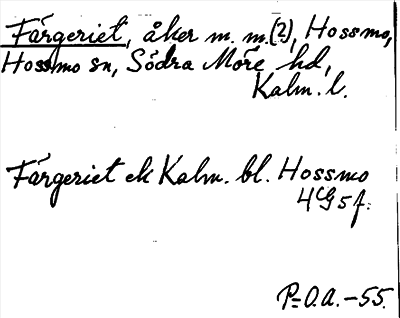 Färgeriet, åker m. m. (2), Hossmo,
Hossmo sn, Södra Möre hd,
Kalm. l.
Färgeriet ek Kalm. bl. Hossmo
4G5f.
P=O.A.-55.